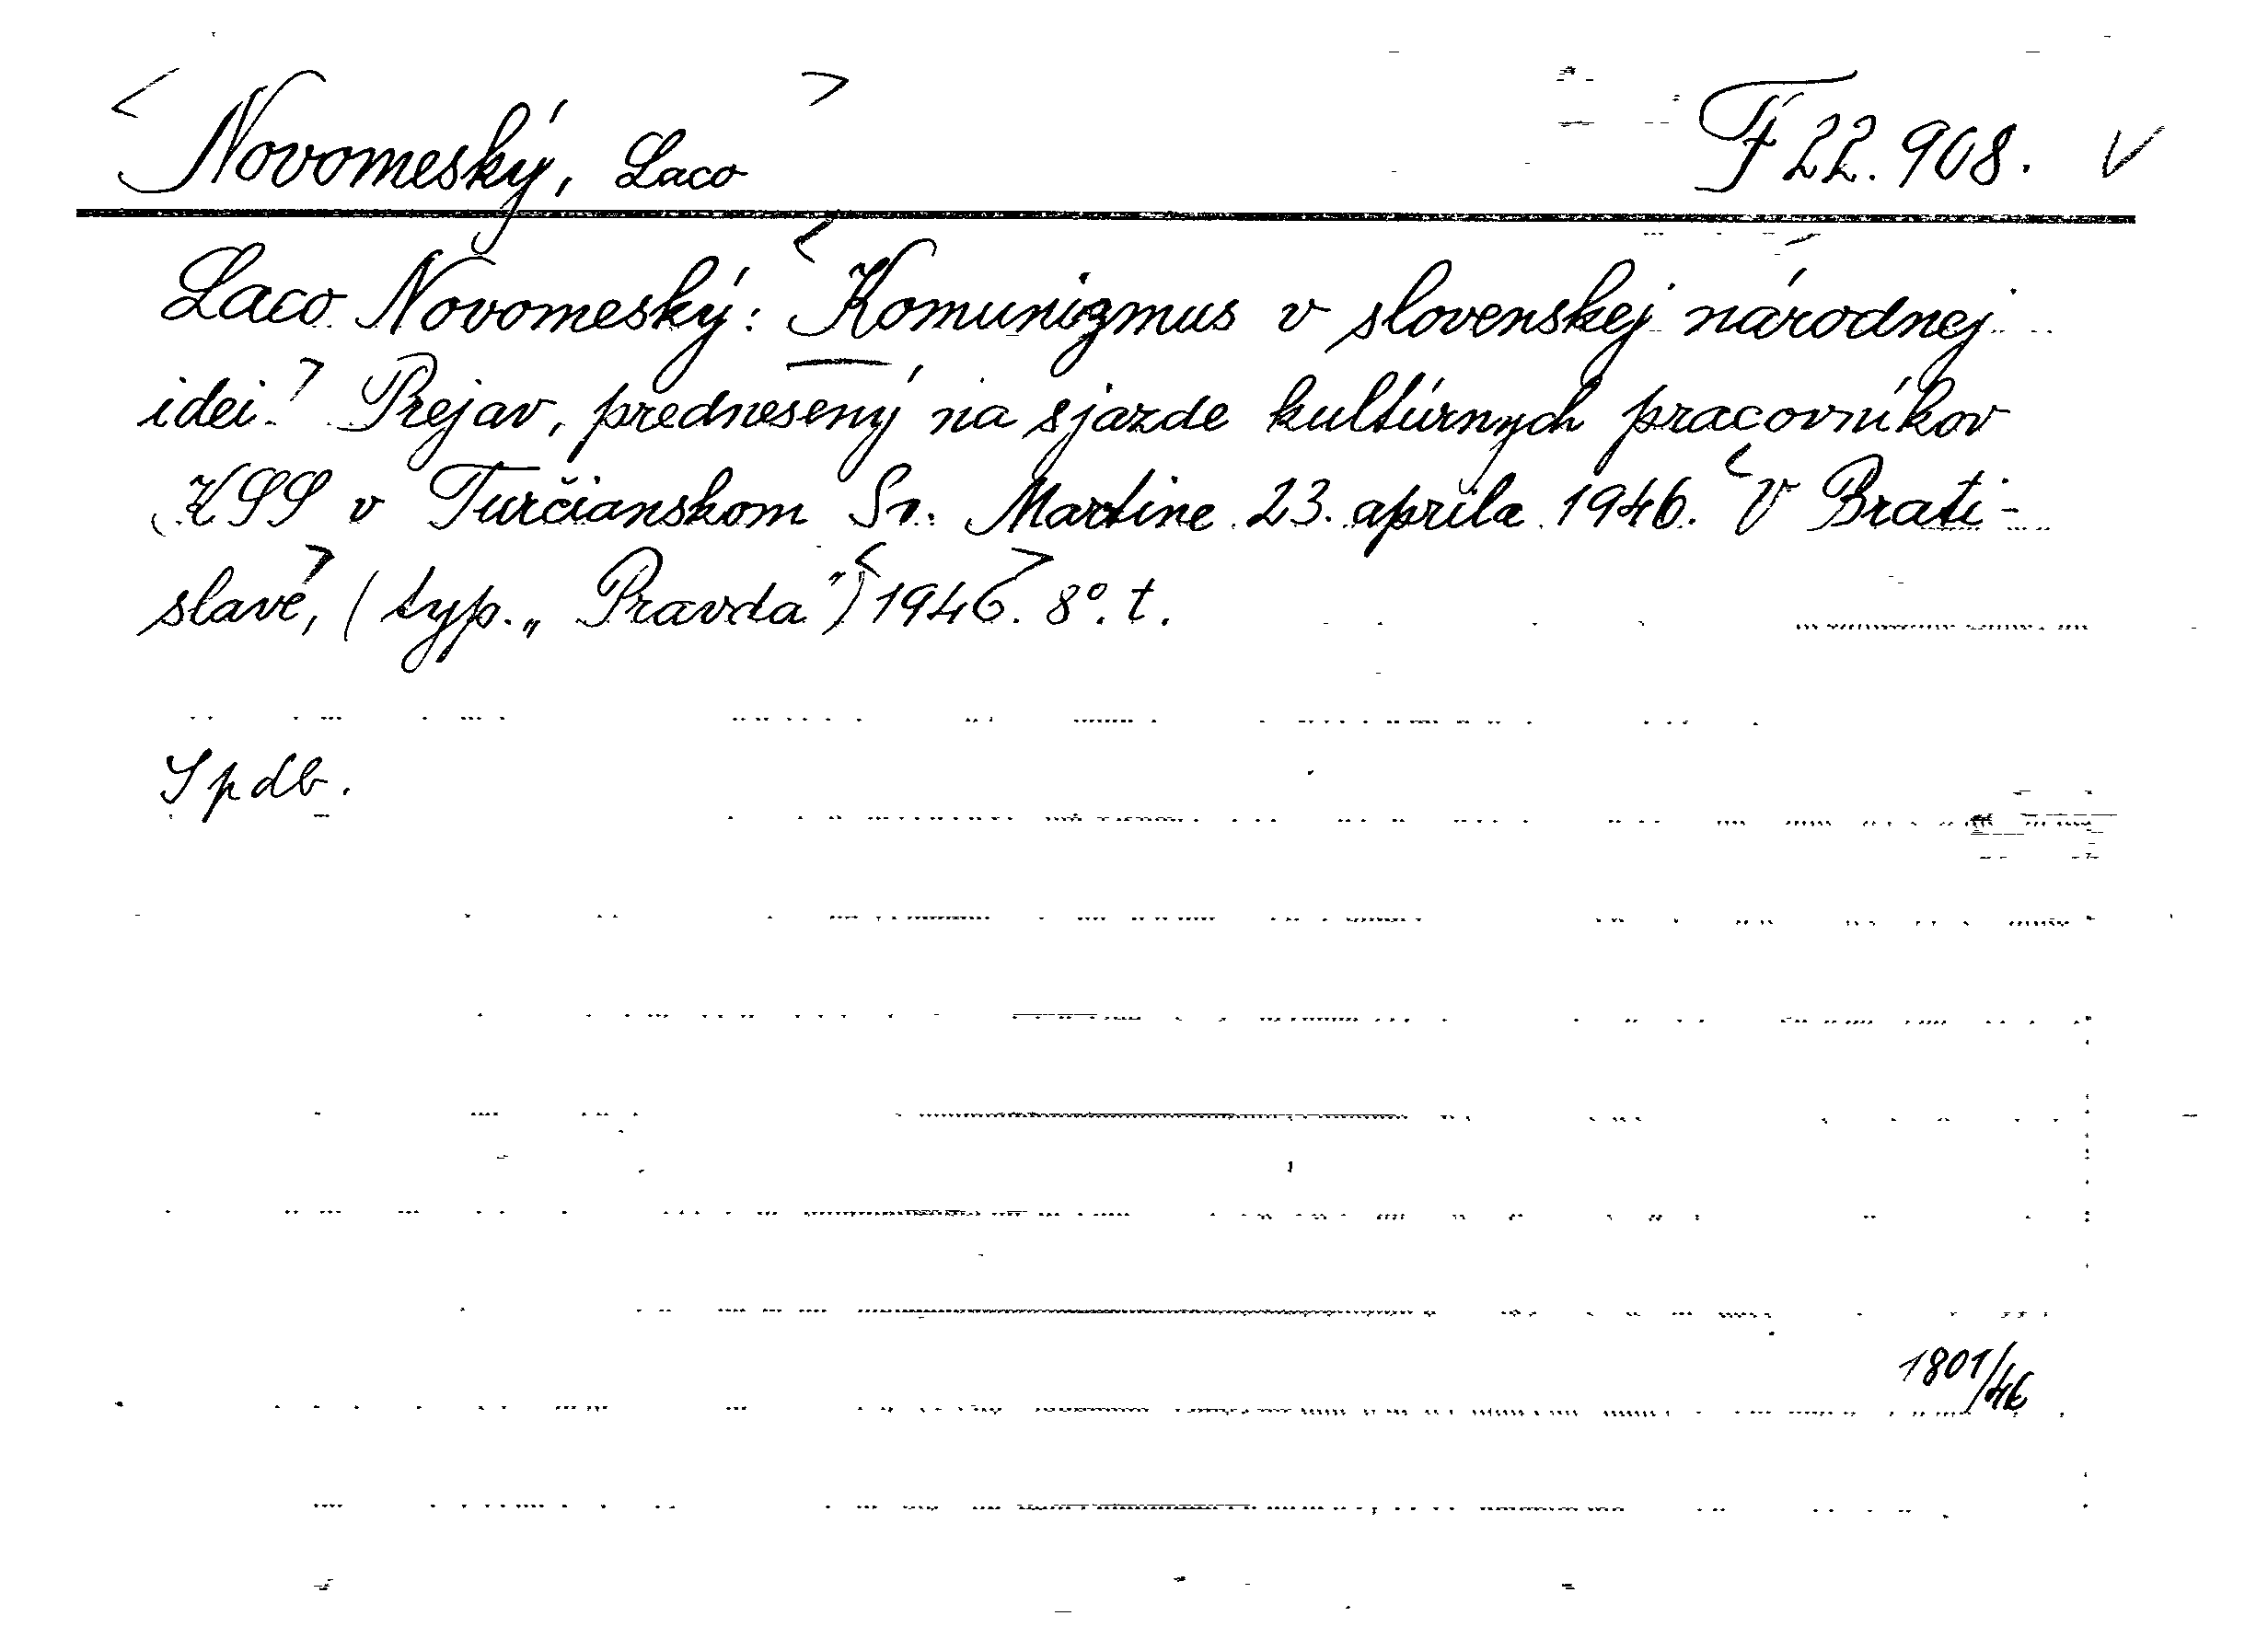 < Novomeský, Laco > F 22.908. V
Laco Novomeský: < Komunizmus v slovenskej národnej
idei. > Prejav, prednesený na sjazde kultúrnych pracovníkov
KSS v Turčianskom Sv. Martine 23. apríla 1946. < V Brati-
slavě, > (typ. „Pravda") < 1946. > 8°. t.
Spdb.
1801/46